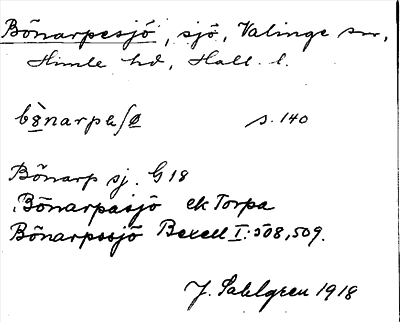 Bönarpesjö, sjö, Valinge sn,
Himle hd, Hall. l.
bö̀narpeʃø s. 140
Bönarp sj. G18
Bönarpasjö ek Torpa
Bönarpssjö Bexell I:508,509.
J. Sahlgren 1918